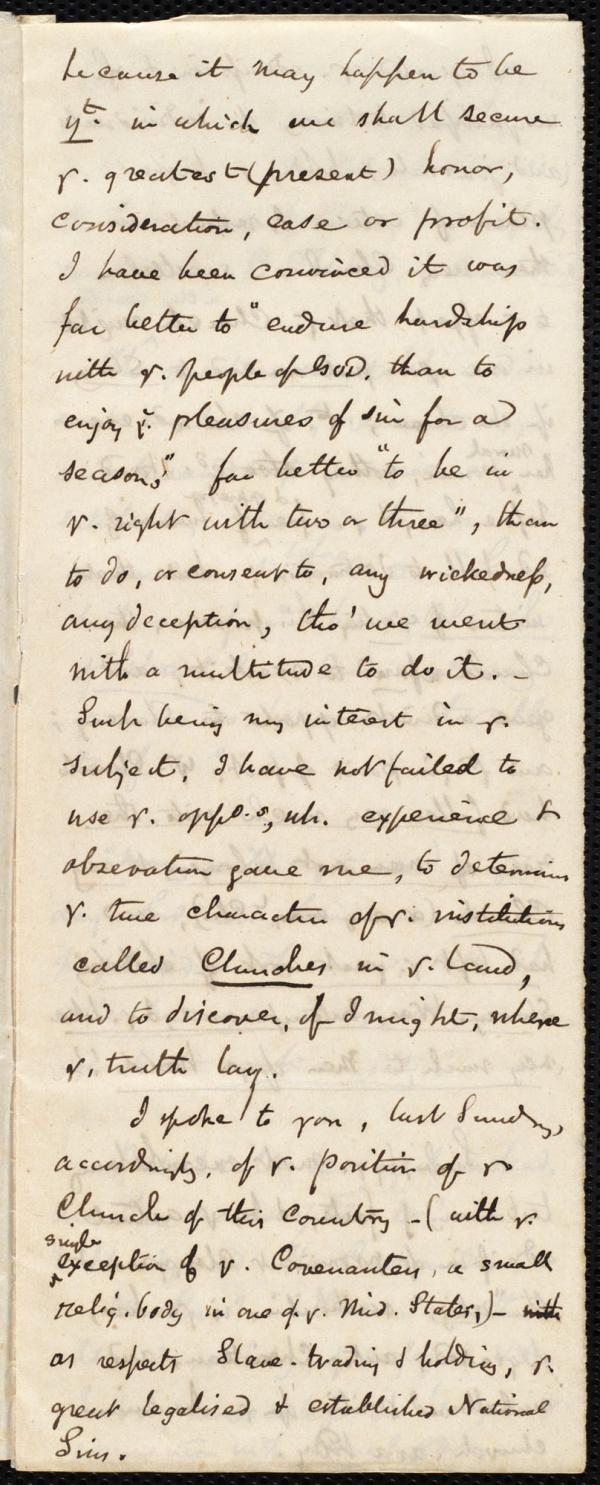 because it may happen to be
yt. in which we shall secure
y. greatest (present) honor,
consideration, ease or profit.
I have been convinced it was
far better to "endure hardship
with y. people of God, than to
enjoy y. pleasures of sin for a
season;" far better "to be in
y. right with two or three", than
to do, or consent to, any wickedness,
any deception, tho' we went
with a multitude to do it. -
Such being my interest in y.
subject, I have not failed to
use y. oppo.s, wh. experience &
observation gave me, to determine
y. true character of y. institutions
called Churches in y. land,
and to discover, if I might, where
y. truth lay.
I spoke to you, last Sunday,
accordingly, of y. position of y.
Church of this country - (with y.
single
exception of y. Covenanters, a small
relig. body in one of y. Mid. States,) - with
as respects Slave-trading & holding, y.
great legalised & established National
Sins.